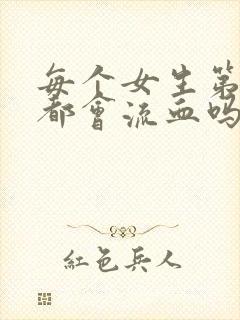 每个女生第
都會流血吗
紅色兵人